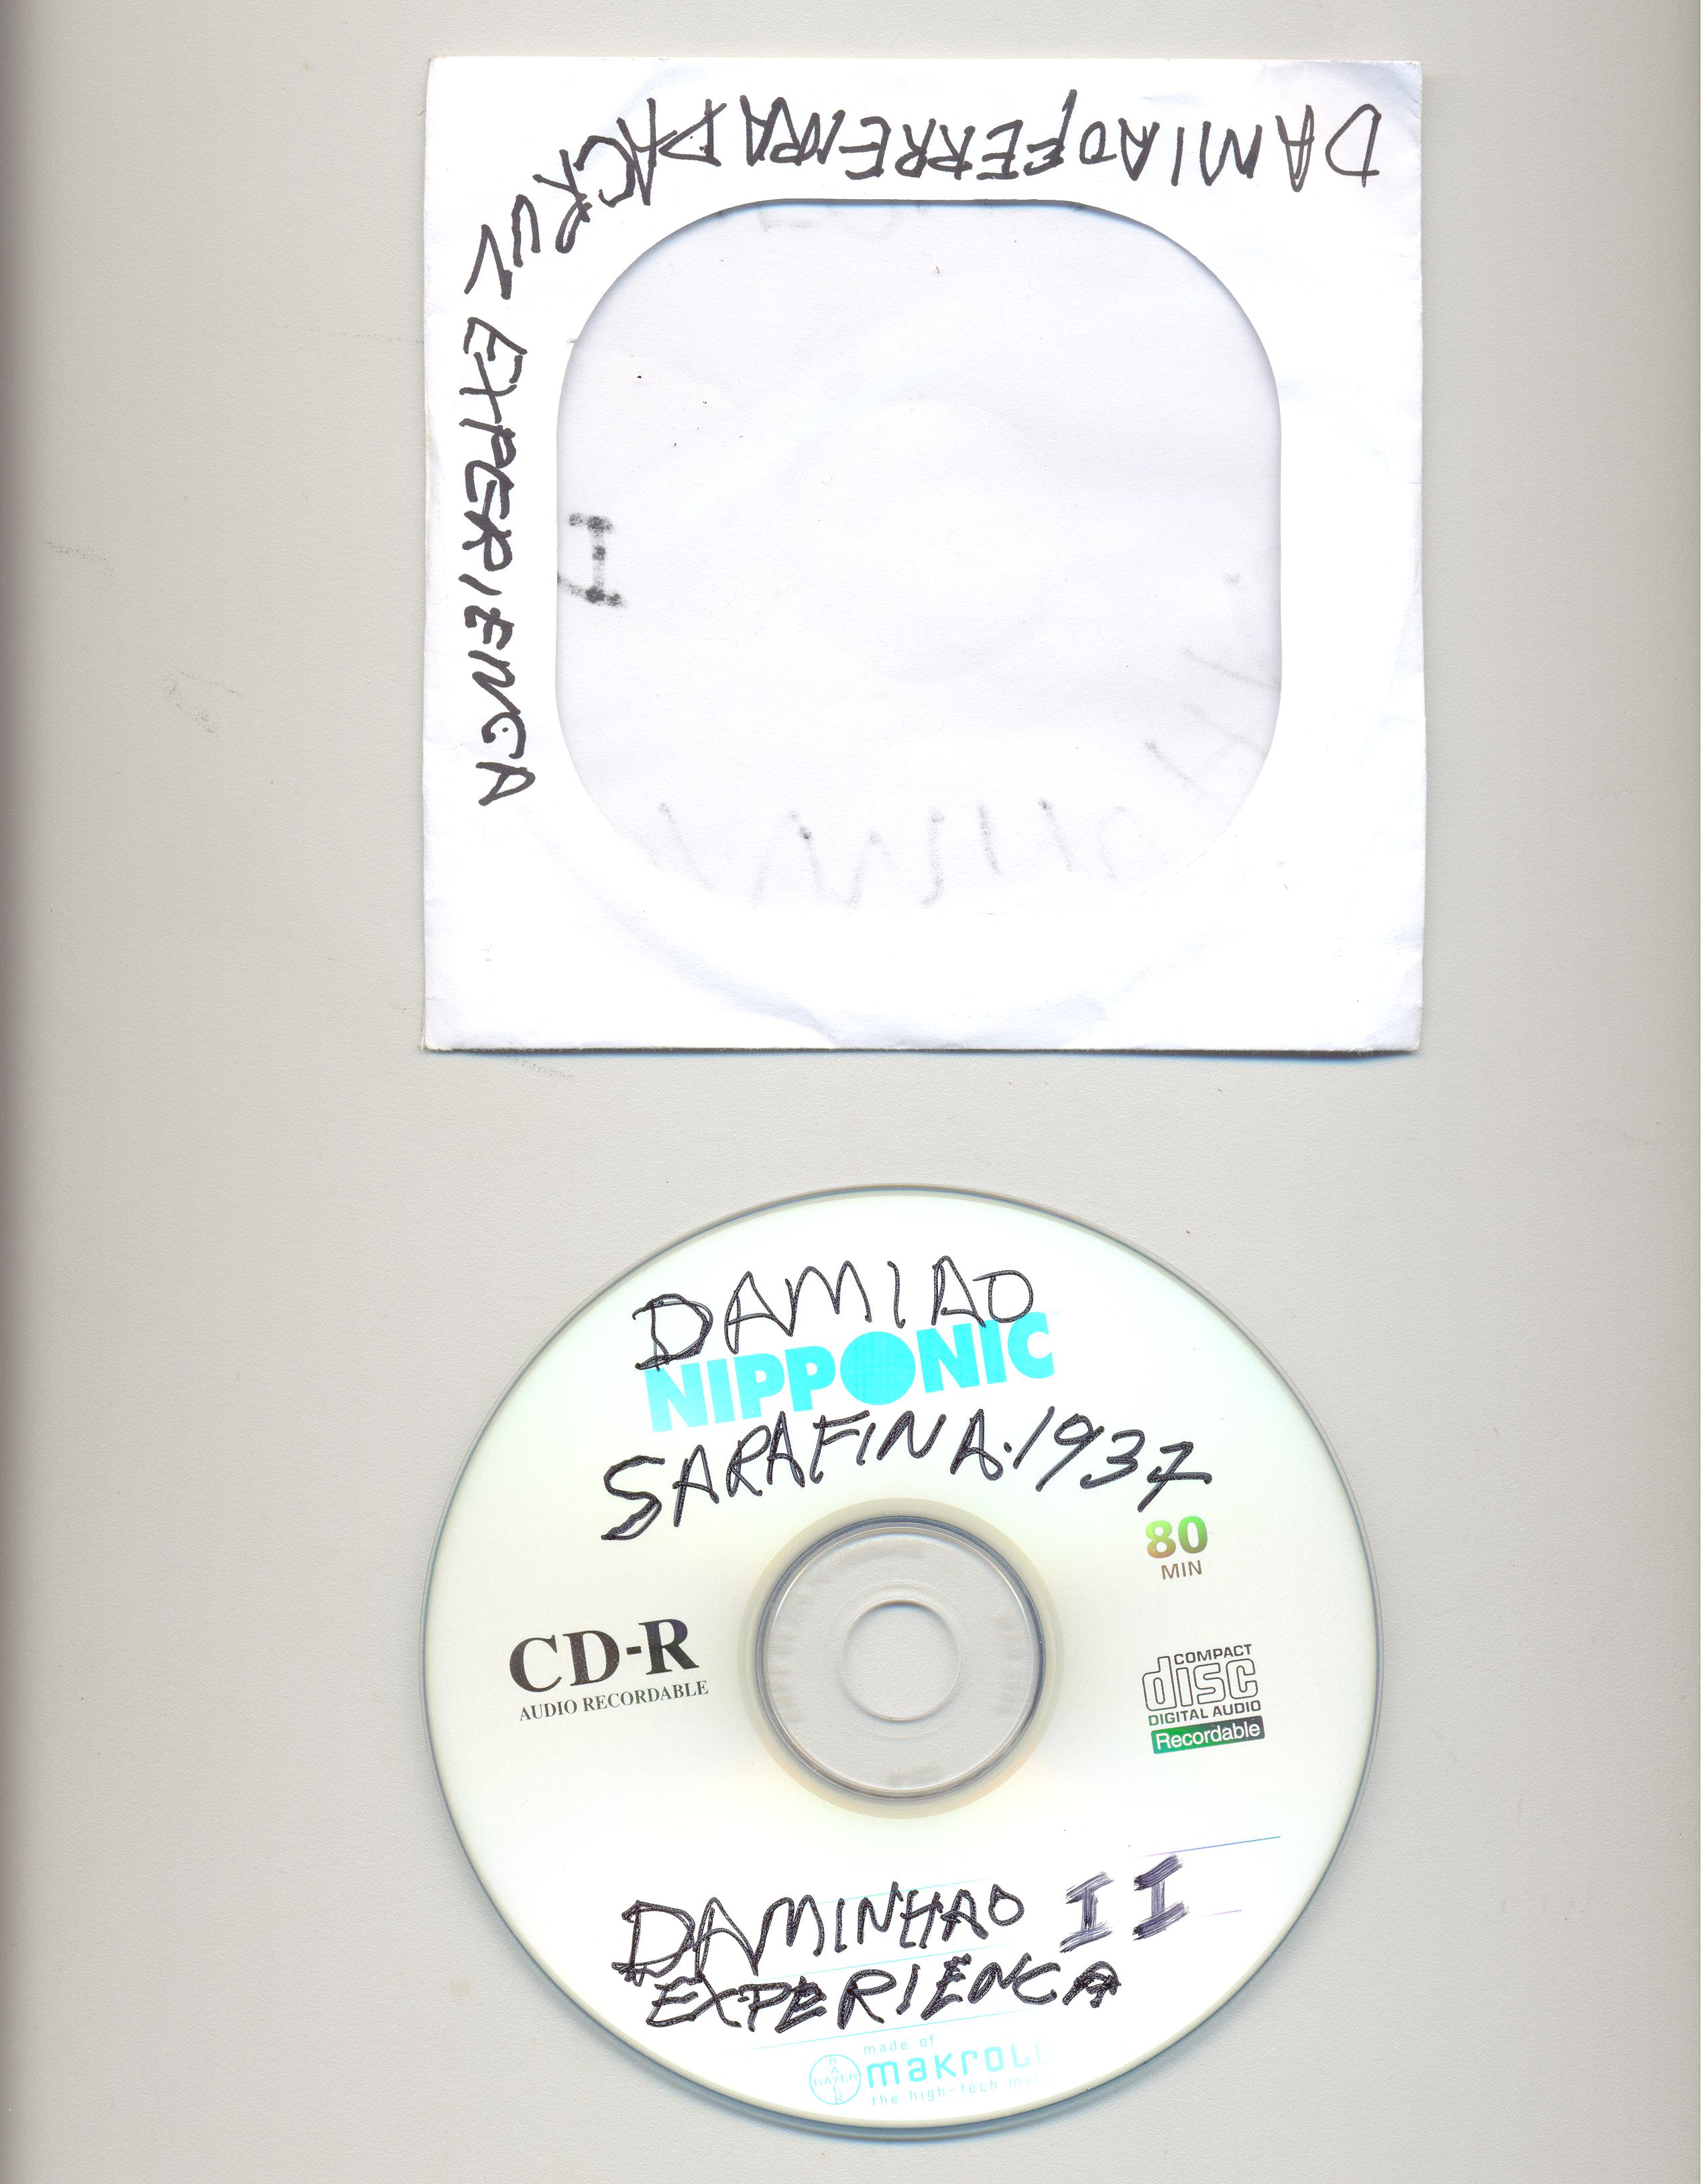 DAMIAO FERREIRA DA CRUZ EXPERIENCA
I
DAMIAO
NIPPONIC
SARAFINA.1937
80
MIN
CD-R
AUDIO RECORDABLE
COMPACT
disc
DIGITAL AUDIO
Recordable
DAMINHAO II
EXPERIENCA
made of
BAYER
BAYER
the high-tech